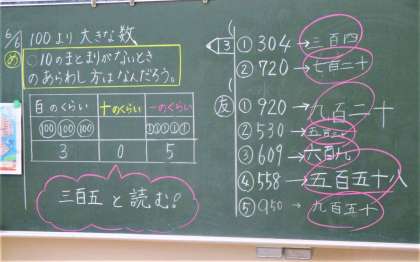 6/6 100より大きな数
め 10のまとまりがないとき
のあらわし方はなんだろう。
百のくらい 十のくらい 一のくらい
100 100 100 1 1 1 1 1
3 0 5
三百五と読む!
3 ① 304→三百四
② 720→七百二十
友 ① 920→九百二十
② 530→五百三十
③ 609→六百九
④ 558→五百五十八
⑤ 950→九百五十